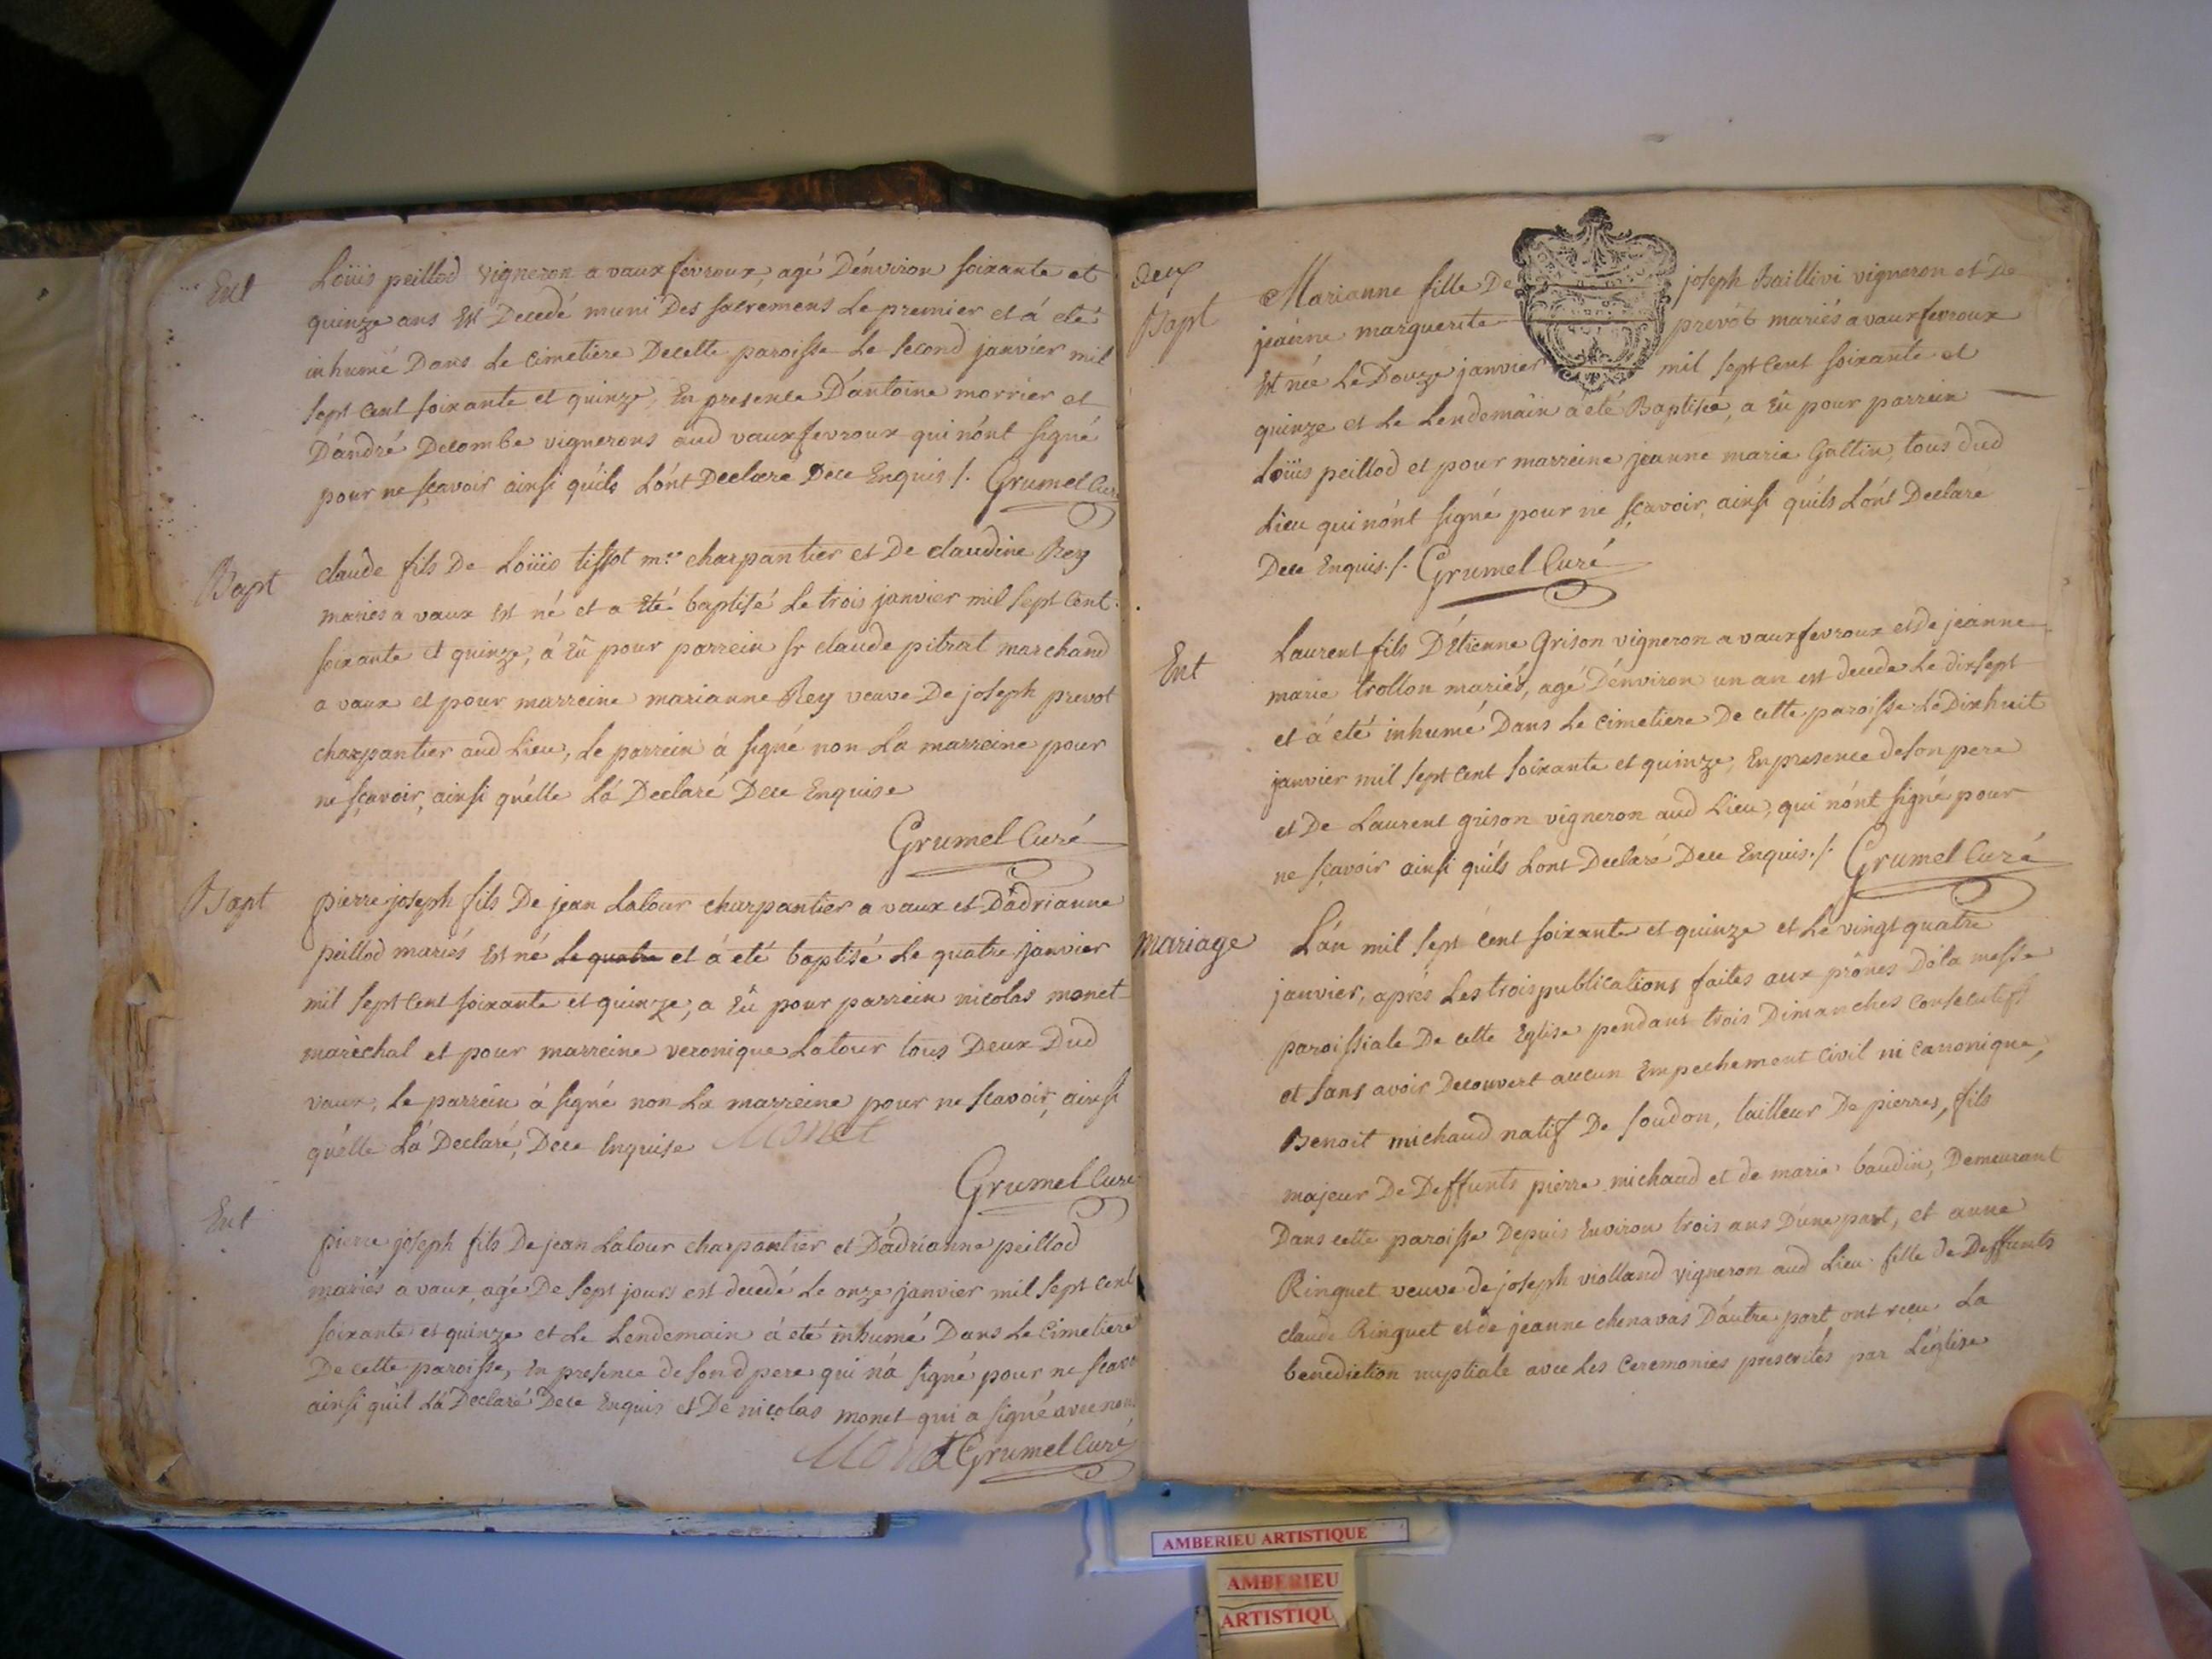 Ent
Loüis peillod vigneron a vaux fevroux, agé D'énviron soixante et
quinze ans Est Decedé muni Des sacremens Le premier et á eté
inhumé Dans Le cimetiere Decette paroisse Le second janvier mil
sept cent soixante et quinze, En presence D'antoine morrier et
D'andré Decombe vignerons aud vauxfevroux qui n'ónt signé
pour ne sçavoir ainsi qúils L'ónt Declaré Dece Enquis /. Grumel Curé
Bapt
claude fils De Loüis tissot mre charpantier et De claudine Rey
mariés a vaux est né et a Eté baptisé Le trois janvier mil sept cent
soixante et quinze, á Eû pour parrein sr claude pitrat marchand
a vaux et pour marreine marianne Rey veuve De joseph prevot
charpantier aud Lieu, Le parrein á signé non La marreine pour
ne sçavoir, ainsi qúelle L'á Declaré Dece Enquise
Grumel Curé
Bapt
pierre joseph fils De jean Latour charpantier a vaux et D'adrianne
peillod mariés Est né Le quatre et á eté baptisé Le quatre janvier
mil sept cent soixante et quinze, a Eû pour parrein nicolas monet
maréchal et pour marreine veronique Latour tous Deux Dud
vaux, Le parrein á signé non La marreine pour ne scavoir, ainsi
qúelle L'á Declaré, Dece Enquise Monet
Grumel Curé
Ent
pierre joseph fils De jean Latour charpantier et D'adrianne peillod
mariés a vaux agé De sept jours est decedé Le onze janvier mil sept cent
soixante et quinze et Le Lendemain á eté inhumé Dans Le Cimetiere
De cette paroisse, En presence de sond pere qui n'á signé pour ne scavoir
ainsi qúil L'á Declaré Dece Enquis et De nicolas monet qui a signé avec nous
Monet Grumel Curé
deux
Bapt
Marianne fille De joseph Baillivi vigneron et De
jeánne marguerite prevót mariés a vauxfevroux
Est née Le Douze janvier mil sept cent soixante et
quinze et Le Lendemain á eté Baptisée, a Eû pour parrein
Loüis peillod et pour marreine jeanne marie Gallin, tous dud
Lieu qui n'ónt signé pour ne sçavoir, ainsi qúils L'ónt Declare
Dece Enquis./. Grumel Curé
Ent
Laurent fils D'Etienne Grison vigneron a vauxfevroux et de jeanne
marie trollon mariés, agé D'énviron un an est decedé Le dixsept
et á eté inhumé Dans Le cimetiere De cette paroisse Le Dixhuit
janvier mil sept cent soixante et quinze, En presence de son pere
et De Laurent grison vigneron aud Lieu, qui n'ónt signé pour
ne sçavoir ainsi qúils L'ont Declaré Dece Enquis./. Grumel Curé
Mariage
L'án mil sept cent soixante et quinze et Le vingt quatre
janvier, aprés Les trois publications faites aux prônes De la messe
paroissiale De cette Eglise pendant trois Dimanches consecutifs
et sans avoir Decouvert aucun Empechement civil ni canonique,
Benoit michaud natif De soudon, tailleur De pierres, fils
majeur De Deffunts pierre michaud et de marie baudin, Demeurant
Dans cette paroisse Depuis Environ trois ans D'une part, et anne
Ringuet veuve de joseph violland vigneron aud Lieu fille de Deffunts
claude Ringuet et de jeanne chenavas D'autre part ont recu La
benediction nuptiale avec Les Ceremonies prescrites par L'église
AMBERIEU ARTISTIQUE
AMBERIEU
ARTISTIQU